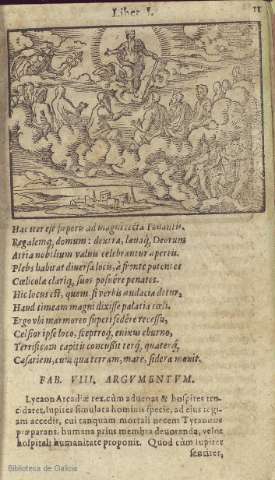 Liber I. 11
Hac iter est superis ad magni tecta Tonantis,
Regalemq, domum: dextra, laevaq, Deorum
Atria nobilium valuis celebrantur apertis.
Plebs habitat diuersa locis, à fronte potentes
Cœlicolæ clariq, suos posuêre penates.
Hic locus est, quem si verbis audacia detur,
Haud timeam magni dixisse palatia cœli.
Ergo vbi marmoreo superi sedêre recessu,
Celsior ipse loco, sceptroq, enixus eburno,
Terrificam capitis concussit terq, quaterq,
Cæsariem, cum qua terram, mare, sidera mouit.
FAB. VIII. ARGVMENTVM.
Lycaon Arcadiæ rex, cùm aduenas & hospites tru-
cidaret, Iupiter simulata hominis specie, ad eius regi-
am accedit, cui tanquam mortali necem Tyrannus
præparans, humana prius membra deuoranda, velut
hospitali humanitate proponit. Quod cùm Iupiter
sentiret,
Biblioteca de Galicia